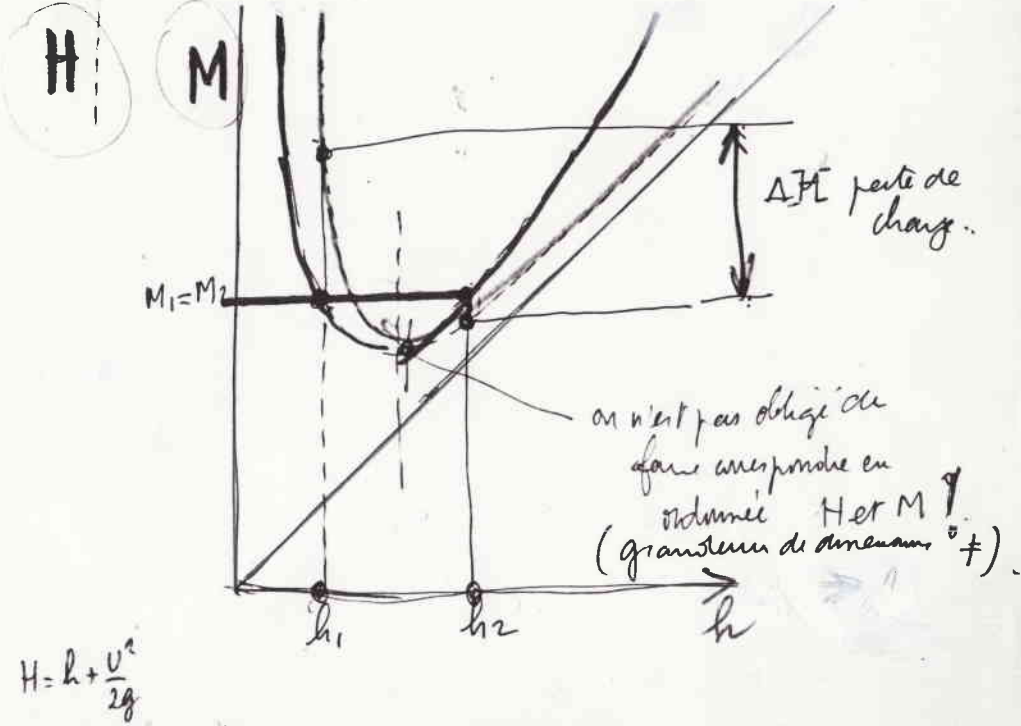 H
M
ΔH perte de
charge..
M₁=M₂
on n'est pas obligé de
faire correspondre en
ordonnée H et M !
(grandeurs de dimensions ≠).
h₁
h₂
h
H = h + U²/2g